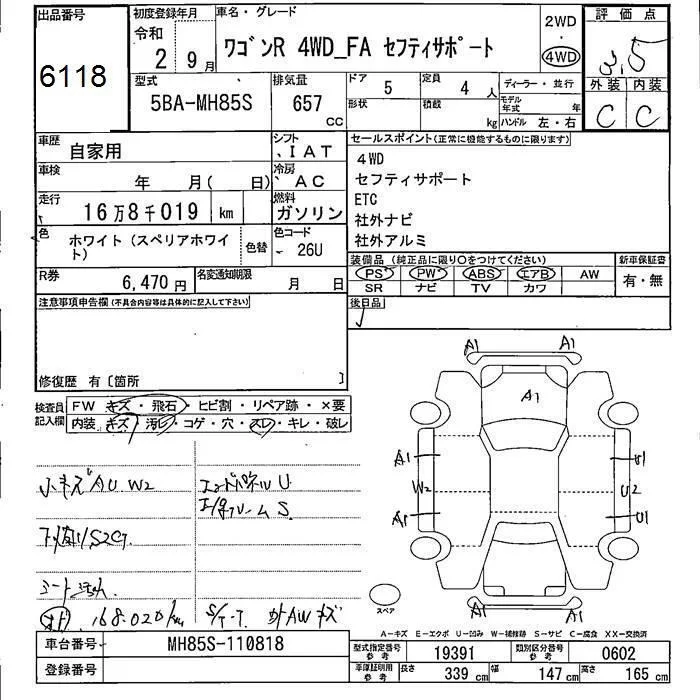 出品番号
6118
初度登録年月
令和
2 9月
車名・グレード
ワゴンR 4WD_FA セフティサポート
2WD
・
4WD
評価点
3.5
外装 内装
C C
型式
5BA-MH85S
排気量
657
CC
ドア
5
形状
定員
4 人
積載
kg
ディーラー・並行
モデル年式 年
ハンドル 左・右
車歴
自家用
シフト
IAT
車検
年 月( 日)
冷房
AC
走行
16万8千019 km
燃料
ガソリン
色
ホワイト(スペリアホワイト)
色替
色コード
26U
R券
6,470円
名変通知期限
月 日
セールスポイント(正常に機能するものに限ります)
4WD
セフティサポート
ETC
社外ナビ
社外アルミ
装備品(純正品に限り○をつけてください)
PS PW ABS エアB AW
SR ナビ TV カワ
新車保証書
有・無
後日品
注意事項申告欄(不具合内容等は具体的に記入して下さい)
修復歴 有〔箇所 〕
検査員記入欄
FW キズ・飛石・ヒビ割・リペア跡・×要
内装 キズ・汚レ・コゲ・穴・スレ・キレ・破レ
小キズ AU W2
エンドパネル U
S
S2C1
168.020km
S/T-T 外AWキズ
A1 A1
A1
A1 U1
W2 U2
A1 U1
A1 A1
スペア
A-キズ E-エクボ U-凹み W-補修跡 S-サビ C-腐食 XX-交換済
車台番号
MH85S-110818
登録番号
型式指定番号 参考
19391
類別区分番号 参考
0602
車庫証明用 参考
長さ 339 cm 幅 147 cm 高さ 165 cm